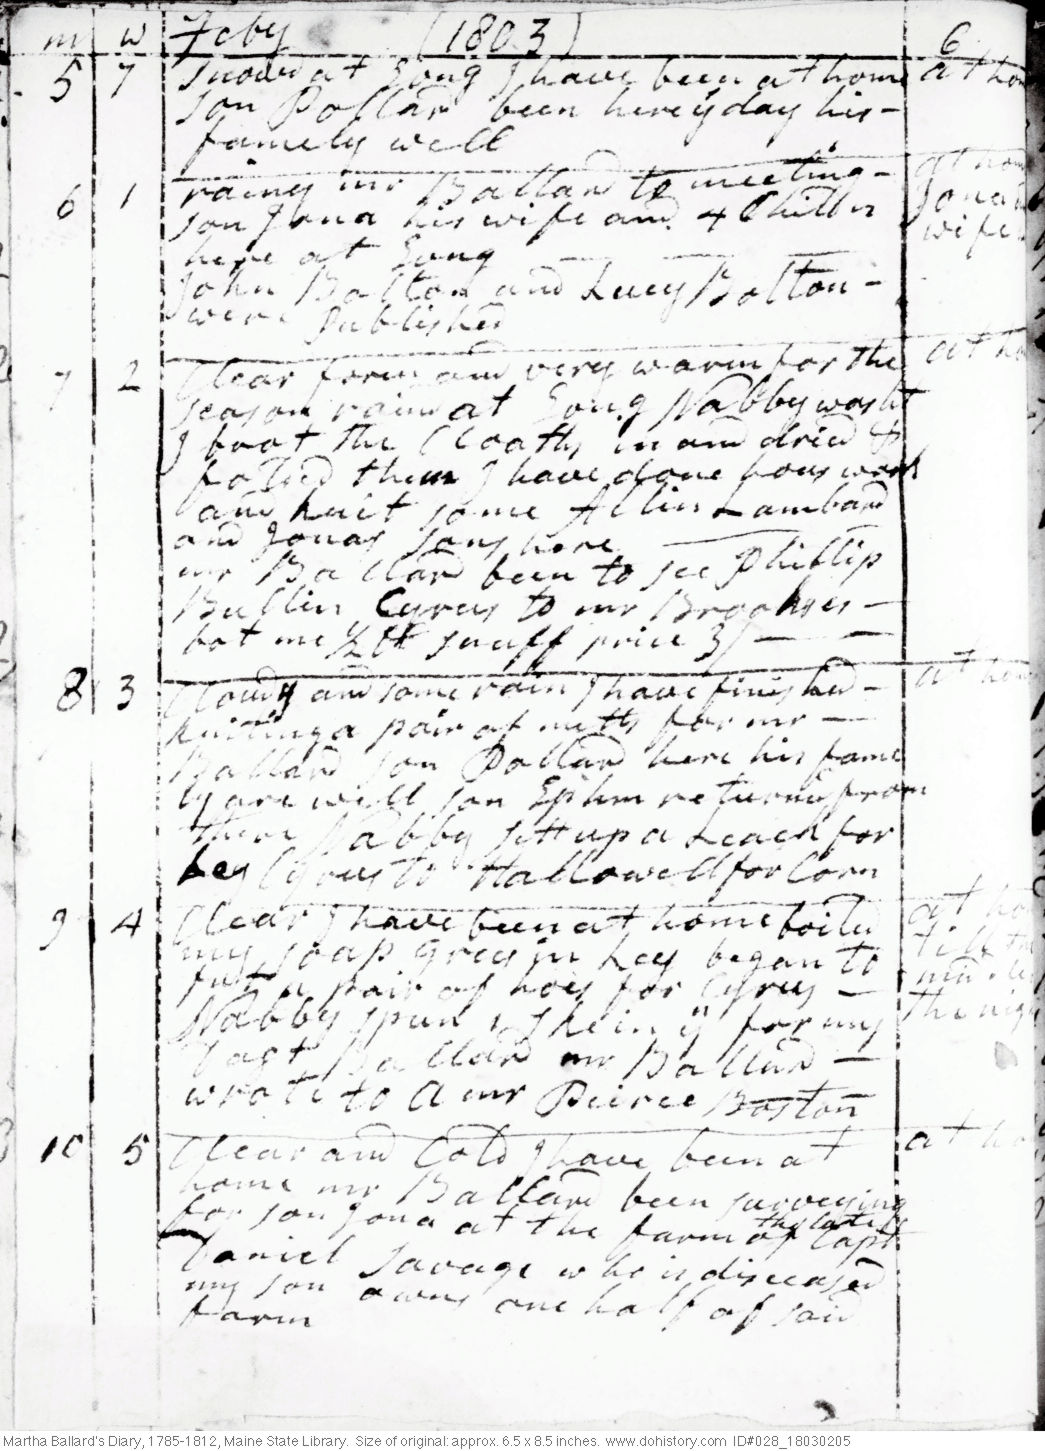 m w Feby (1803) 6
5 7 Snowd at Evng I have been at home at hom
son Pollard been here ys day his -
famely well
6 1 rainey mr Ballard to meeting - at hom
son Jona his wife and 4 Childn Jona
here at Evng wife
John Bolton and Lucy Bolton -
were Published
7 2 Clear foren and very warm for the at ho
season raind at Evng Nabby washt
I brot the Cloaths in and dried &
folded them I have done hous work
and knit some Allin Lambard
and Jonas sons here
mr Ballard been to see Phillip
Bullin Cyrus to mr Brookses -
bot me ½ lb snuff price 3/ - -
8 3 Cloudy and some rain I have finished - at hom
knitting a pair of mitts for mr -
Ballard son Pollard here his fame
ly are well son Ephm returnd from
there Nabby sett up a Leach for
Ley Cyrus to Hallowell for Corn
9 4 Clear I have been at home boild at ho
my soap grees in Ley began to till the
foot a pair of hoes for Cyrus -
Nabby spun 1 skein ys for my the nigh
last Ballard mr Ballard -
wrote to a mr Peirce Boston
10 5 Clear and Cold I have been at at ho
home mr Ballard been surveying
for son Jona at the farm of Capt
the late
Daniel Savage who is diseased
my son owns one half of said
farm
Martha Ballard's Diary, 1785-1812, Maine State Library. Size of original: approx. 6.5 x 8.5 inches. www.dohistory.com ID#028_18030205